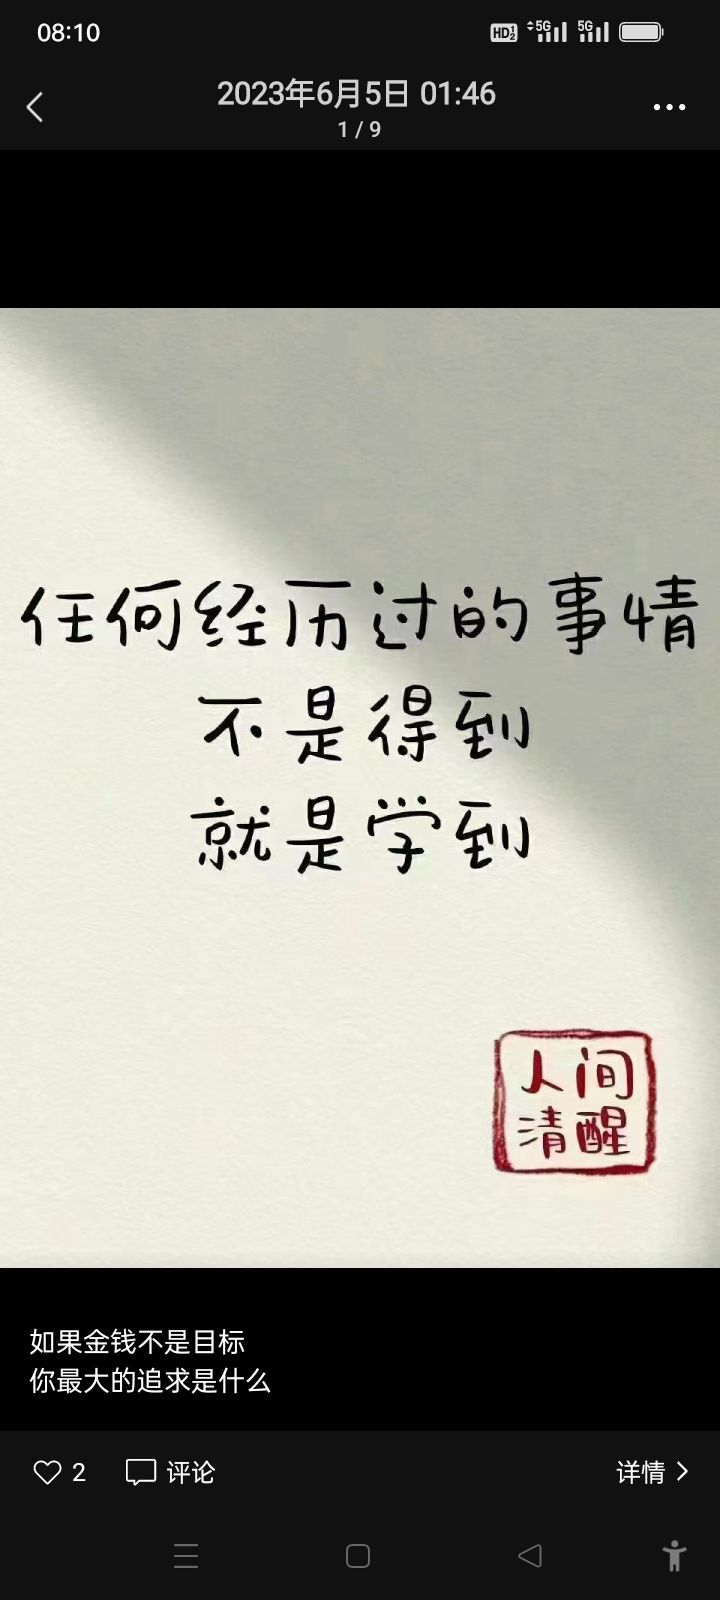 08:10
HD 1 2 5G 5G
2023年6月5日 01:46
1 / 9
任何经历过的事情
不是得到
就是学到
人间
清醒
如果金钱不是目标
你最大的追求是什么
2 评论 详情